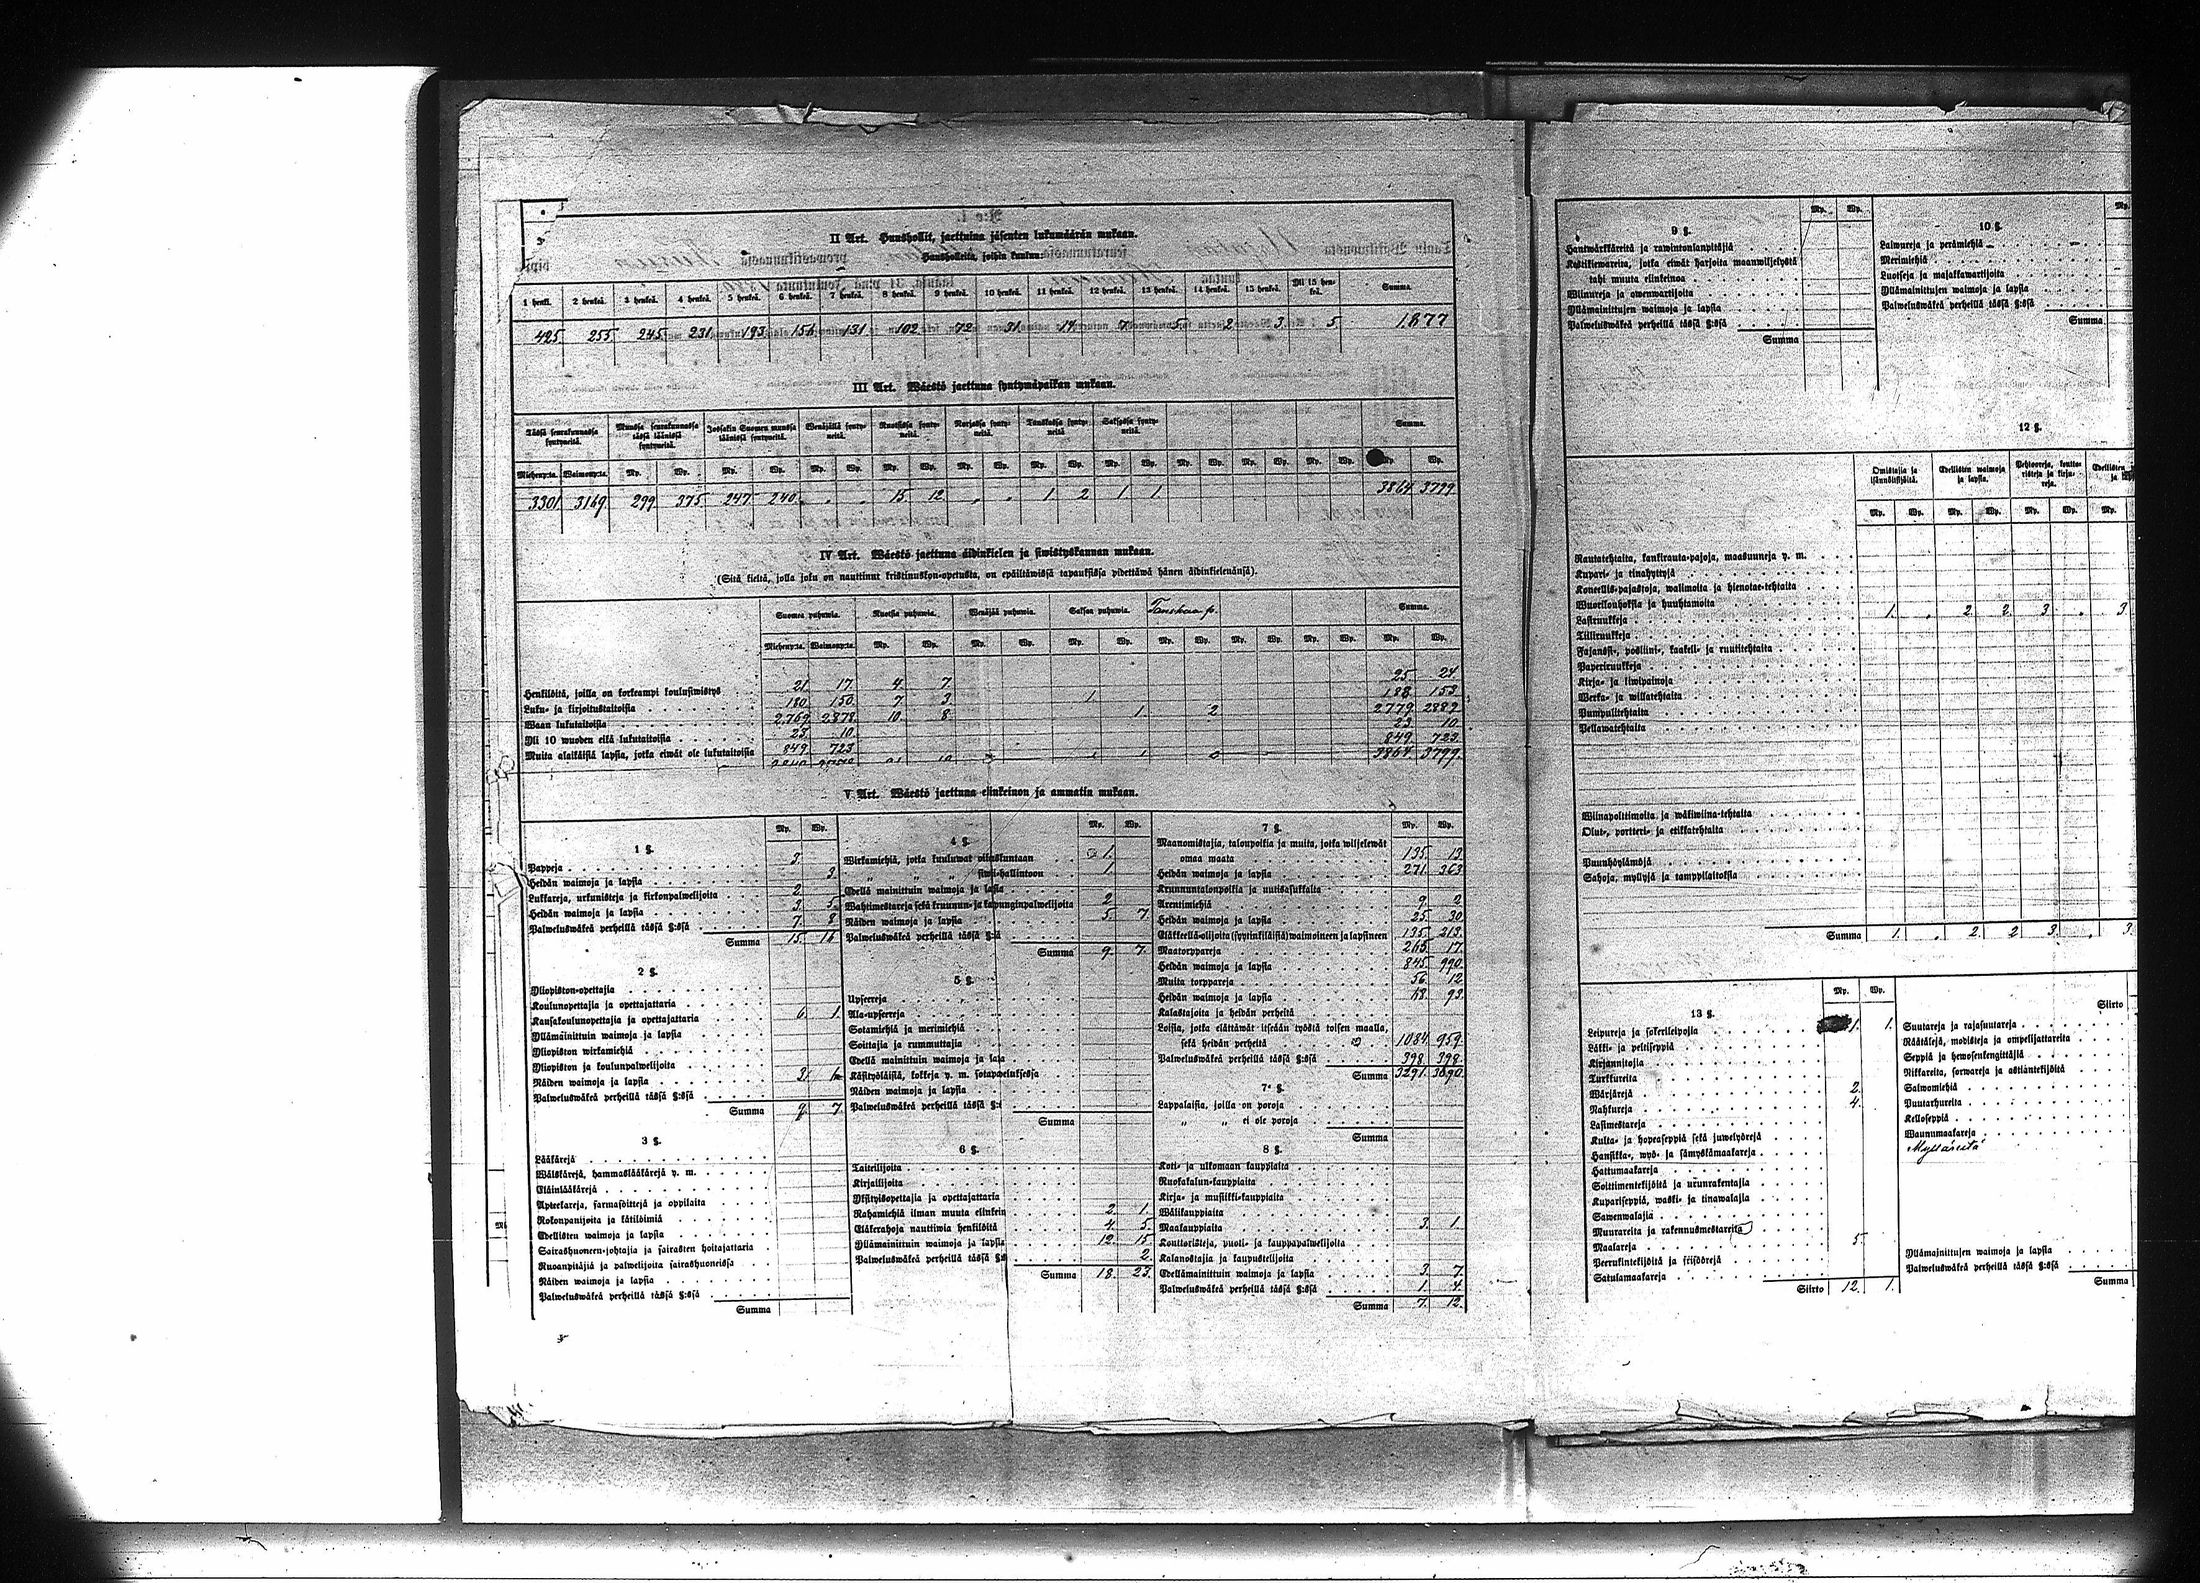 II Art. Huushollit, jaettuina jäsenten lukumäärän mukaan.
Huusholleita, joihin kuuluu:
1 henki. 2 henkeä. 3 henkeä. 4 henkeä. 5 henkeä. 6 henkeä. 7 henkeä. 8 henkeä. 9 henkeä. 10 henkeä. 11 henkeä. 12 henkeä. 13 henkeä. 14 henkeä. 15 henkeä. Yli 15 henkeä. Summa.
425 255 245 231 193 156 131 102 72 31 19 7 5 2 3 5 1877
III Art. Wäestö jaettuna syntymäpaikan mukaan.
Tässä seurakunnassa syntyneitä. Muussa seurakunnassa tässä läänissä syntyneitä. Jossakin Suomen muussa läänissä syntyneitä. Wenäjällä syntyneitä. Ruotsissa syntyneitä. Norjassa syntyneitä. Tanskassa syntyneitä. Saksassa syntyneitä. Summa.
Miehenp:ta. Waimonp:ta. Mp. Wp. Mp. Wp. Mp. Wp. Mp. Wp. Mp. Wp. Mp. Wp. Mp. Wp. Mp. Wp. Mp. Wp. Mp. Wp. Mp. Wp.
3301 3169 299 375 247 240 . . 15 12 . . 1 2 1 1 3864 3799
IV Art. Wäestö jaettuna äidinkielen ja siwistyskannan mukaan.
(Sitä kieltä, jolla joku on nauttinut kristinuskon-opetusta, on epäiltäwissä tapauksissa pidettäwä hänen äidinkielenänsä).
Suomea puhuwia. Ruotsia puhuwia. Wenäjää puhuwia. Saksaa puhuwia. Tanskaa p. Summa.
Miehenp:ta. Waimonp:ta. Mp. Wp. Mp. Wp. Mp. Wp. Mp. Wp. Mp. Wp. Mp. Wp. Mp. Wp.
Henkilöitä, joilla on korkeampi koulusiwistys 21 17 4 7 25 24
Luku- ja kirjoitustaitoisia 180 150 7 3 1 188 153
Waan lukutaitoisia 2769 2878 10 8 1 2 2779 2889
Yli 10 wuoden eikä lukutaitoisia 23 10 23 10
Muita alaikäisiä lapsia, jotka eiwät ole lukutaitoisia 849 723 849 723
3864 3799
V Art. Wäestö jaettuna elinkeinon ja ammatin mukaan.
Mp. Wp.
1 §.
Pappeja 3
Heidän waimoja ja lapsia 3
Lukkareja, urkunisteja ja kirkonpalwelijoita 2
Heidän waimoja ja lapsia 3 5
Palweluswäkeä perheillä tässä §:ssä 7 8
Summa 15 16
2 §.
Yliopiston-opettajia
Koulunopettajia ja opettajattaria
Kansakoulunopettajia ja opettajattaria 6 1
Yllämainittuin waimoja ja lapsia
Yliopiston wirkamiehiä
Yliopiston ja koulunpalwelijoita
Näiden waimoja ja lapsia
Palweluswäkeä perheillä tässä §:ssä
Summa 9 7
3 §.
Lääkärejä
Wälskärejä, hammaslääkärejä y. m.
Eläinlääkärejä
Apteekareja, farmaseittejä ja oppilaita
Rokonpanijoita ja kätilöimiä
Edellisten waimoja ja lapsia
Sairashuoneen-johtajia ja sairasten hoitajattaria
Ruoanpitäjiä ja palwelijoita sairashuoneissa
Näiden waimoja ja lapsia
Palweluswäkeä perheillä tässä §:ssä
Summa
Mp. Wp.
4 §.
Wirkamiehiä, jotka kuuluwat oikeuskuntaan 1
„ „ „ siwil-hallintoon 1
Edellä mainittuin waimoja ja lapsia
Wahtimestareja sekä kruunun- ja kaupunginpalwelijoita 2
Näiden waimoja ja lapsia 5 7
Palweluswäkeä perheillä tässä §:ssä
Summa 9 7
5 §.
Upseereja
Ala-upseereja
Sotamiehiä ja merimiehiä
Soittajia ja rummuttajia
Edellä mainittuin waimoja ja lapsia
Käsityöläisiä, kokkeja y. m. sotapalweluksessa
Näiden waimoja ja lapsia
Palweluswäkeä perheillä tässä §:ssä
Summa
6 §.
Taiteilijoita
Kirjailijoita
Yksityisopettajia ja opettajattaria
Rahamiehiä ilman muuta elinkeinoa 2 1
Eläkerahoja nauttiwia henkilöitä 4 5
Yllämainittuin waimoja ja lapsia 12 15
Palweluswäkeä perheillä tässä §:ssä 2
Summa 18 23
Mp. Wp.
7 §.
Maanomistajia, talonpoikia ja muita, jotka wiljelewät
omaa maata 135 13
Heidän waimoja ja lapsia 271 363
Kruununtalonpoikia ja uutisasukkaita
Arentimiehiä 9 2
Heidän waimoja ja lapsia 25 30
Eläkkeellä-olijoita (syytinkiläisiä) waimoineen ja lapsineen 135 213
Maatorppareja 265 17
Heidän waimoja ja lapsia 845 990
Muita torppareja 56 12
Heidän waimoja ja lapsia 68 93
Kalastajoita ja heidän perheitä
Loisia, jotka elättäwät itseään työstä toisen maalla,
sekä heidän perheitä 1084 959
Palweluswäkeä perheillä tässä §:ssä 398 398
Summa 3291 3090
7ᵃ §.
Lappalaisia, joilla on poroja
„ „ ei ole poroja
Summa
8 §.
Koti- ja ulkomaan kauppiaita
Ruokakalun-kauppiaita
Kirja- ja musiikki-kauppiaita
Wälikauppiaita
Maakauppiaita 3 1
Konttoristeja, puoti- ja kauppapalwelijoita
Kalanostajia ja kaupustelijoita
Edellämainittuin waimoja ja lapsia 3 7
Palweluswäkeä perheillä tässä §:ssä 1 4
Summa 7 12
9 §. Mp. Wp.
Hantwärkkäreitä ja rawintolanpitäjiä
Kestikiewareita, jotka eiwät harjoita maanwiljelystä
tahi muuta elinkeinoa
Wiinureja ja owenwartijoita
Yllämainittujen waimoja ja lapsia
Palweluswäkeä perheillä tässä §:ssä
Summa
10 §. Mp.
Laiwureja ja perämiehiä
Merimiehiä
Luotseja ja majakkawartijoita
Yllämainittujen waimoja ja lapsia
Palweluswäkeä perheillä tässä §:ssä
Summa
12 §.
Omistajia ja isännöitsijöitä. Edellisten waimoja ja lapsia. Pehtooreja, konttoristeja ja kirjureja. Edellisten
Mp. Wp. Mp. Wp. Mp. Wp. Mp.
Rautatehtaita, kankirauta-pajoja, maasuuneja y. m.
Kupari- ja tinahyttyjä
Koneellis-pajastoja, walimoita ja hienotae-tehtaita
Wuorilouhoksia ja huuhtamoita
Lasiruukkeja 1 . 2 2 3 . 3
Tiiliruukkeja
Fajanssi-, posliini-, kaakeli- ja ruutitehtaita
Paperiruukkeja
Kirja- ja kiwipainoja
Werka- ja willatehtaita
Pumpulitehtaita
Pellawatehtaita
Wiinapolttimoita ja wäkiwiina-tehtaita
Olut-, portteri- ja etikkatehtaita
Puunhöyläämöjä
Sahoja, myllyjä ja tamppilaitoksia
Summa 1 . 2 2 3 . 3
13 §. Mp. Wp.
Leipureja ja sokerileipojia 1 1
Läkki- ja peltiseppiä
Kirjansitojia
Turkkureita
Wärjärejä 2
Nahkureja 4
Lasimestareja
Kulta- ja hopeaseppiä sekä juwelyörejä
Hansikka-, wyö- ja sämyskämaakareja
Hattumaakareja
Soittimentekijöitä ja uurunrakentajia
Kupariseppiä, waski- ja tinawalajia
Sawenwalajia
Muurareita ja rakennusmestareita
Maalareja 5
Perrukintekijöitä ja friisöörejä
Satulamaakareja
Siirto 12 1
Siirto
Suutareja ja rajasuutareja
Räätälejä, modisteja ja ompelijattareita
Seppiä ja hewosenkengittäjiä
Nikkareita, sorwareja ja astiantekijöitä
Salwomiehiä
Puutarhureita
Kelloseppiä
Waunumaakareja
Mylläreitä
Yllämainittujen waimoja ja lapsia
Palweluswäkeä perheillä tässä §:ssä
Summa